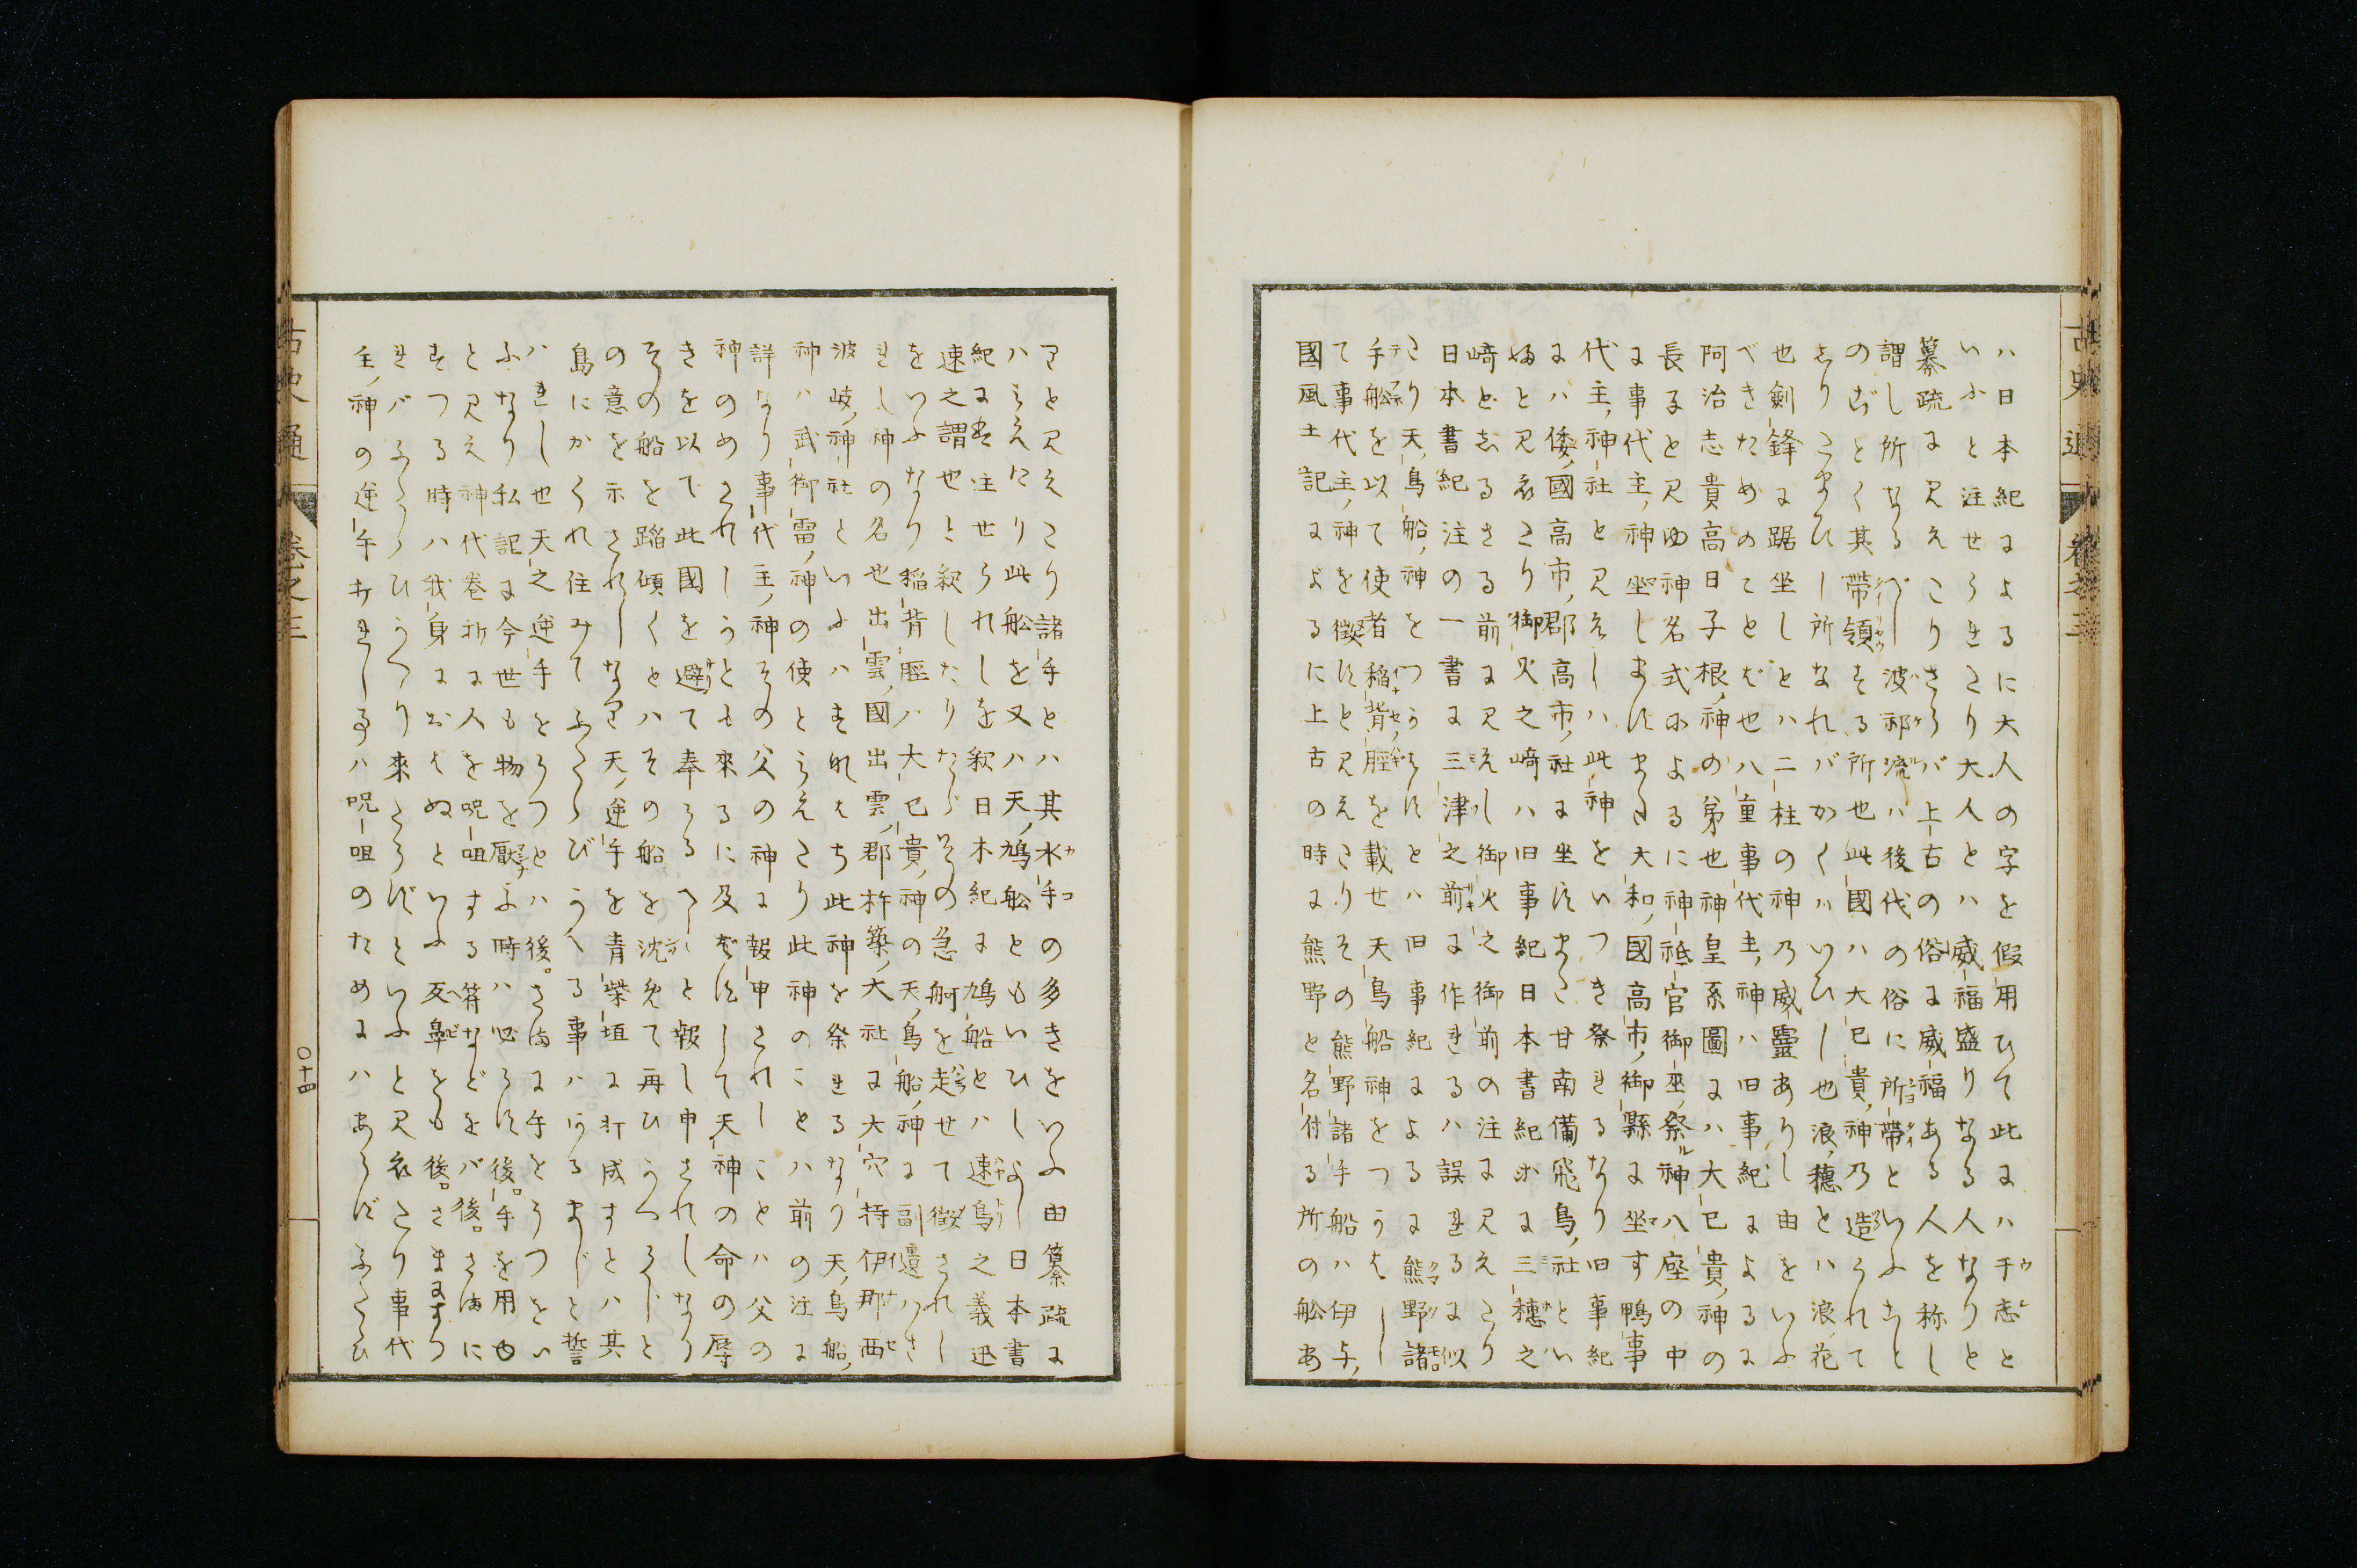 ハ日本紀によるに大人の字を假用ひて此にハ于志と
いふと注せられたり大人とハ威福盛りなる人なりと
纂疏に見えたりさらバ上古の俗に威福ある人を称し
謂し所なるべし波祁流ハ後代の俗に所帶といふこと
のごとく其帶領する所也此國ハ大已貴神乃造られて
しりたまひし所なれバかくハいひし也浪穗とハ浪花
也劍鋒に踞坐しとハ二柱の神乃威靈ありし由をいふ
べきためのことば也八重事代主神ハ旧事紀によるに
阿治志貴高日子根神の弟也神皇系圖にハ大已貴神の
長子と見ゆ神名式によるに神祗官御巫祭神八座の中
に事代主神坐しますまた大和國高市御縣に坐す鴨事
代主神社と見えしハ此神をいつき祭れるなり旧事紀
にハ倭國高市郡高市社に坐すまた甘南備飛鳥社とい
ふと見えたり御火之﨑ハ旧事紀日本書紀等に三穗之
﨑としるさる前に見えし御火之御前の注に見えたり
日本書紀注の一書に三津之前に作れるハ誤れるに似
たり天鳥船神をつかはすとハ旧事紀によるに熊野諸
手船を以て使者稲背脛を載せ天鳥船神をつかはし
て事代主神を徴すと見えたりその熊野諸手船ハ伊与
國風土記によるに上古の時に熊野と名付る所の舩あ
りと見えたり諸手とハ其水手の多きをいふ由纂疏に
ハ見えたり此舩を又ハ天鳩舩ともいひしよし日本書
紀に注せられしを釈日本紀に鳩船とハ速鳥之義迅
速之謂也と釈したりたゞその急舸を趁せて徴されし
をいふなり稲背脛ハ大已貴神の天鳥船神に副遣ハさ
れし神の名也出雲國出雲郡杵築大社に大穴持伊那西
波岐神社といふハすなはち此神を祭れるなり天鳥船
神ハ武御雷神の使と見えたり此神のことハ前の注に
詳なり事代主神その父の神に報申されしことハ父の
神のめされしかとも來るに及ばずして天神の命の辱
きを以て此國を避て奉らるべしと報し申されしなり
その船を蹈傾くとハその船を沈めて再ひかへらじと
の意を示されしなり天逆手を青柴垣に打成すとハ其
島にかくれ住みてふたゝびかへる事ハあるまじと誓
ハれし也天之逆手をうつとハ後さまに手をうつをい
ふなり私記に今世も物を厭ふ時ハ必らず後手を用ゆ
と見え神代卷訴に人を呪咀する符などをバ後さまに
すつる時ハ我身におはぬといふ反鼻をも後さますつ
れバふたゝびかへり來たらずといふと見えたり事代
主神の逆手打れし事ハ呪咀のためにハあらずふたゝひ
古史通 卷之三
〇十四